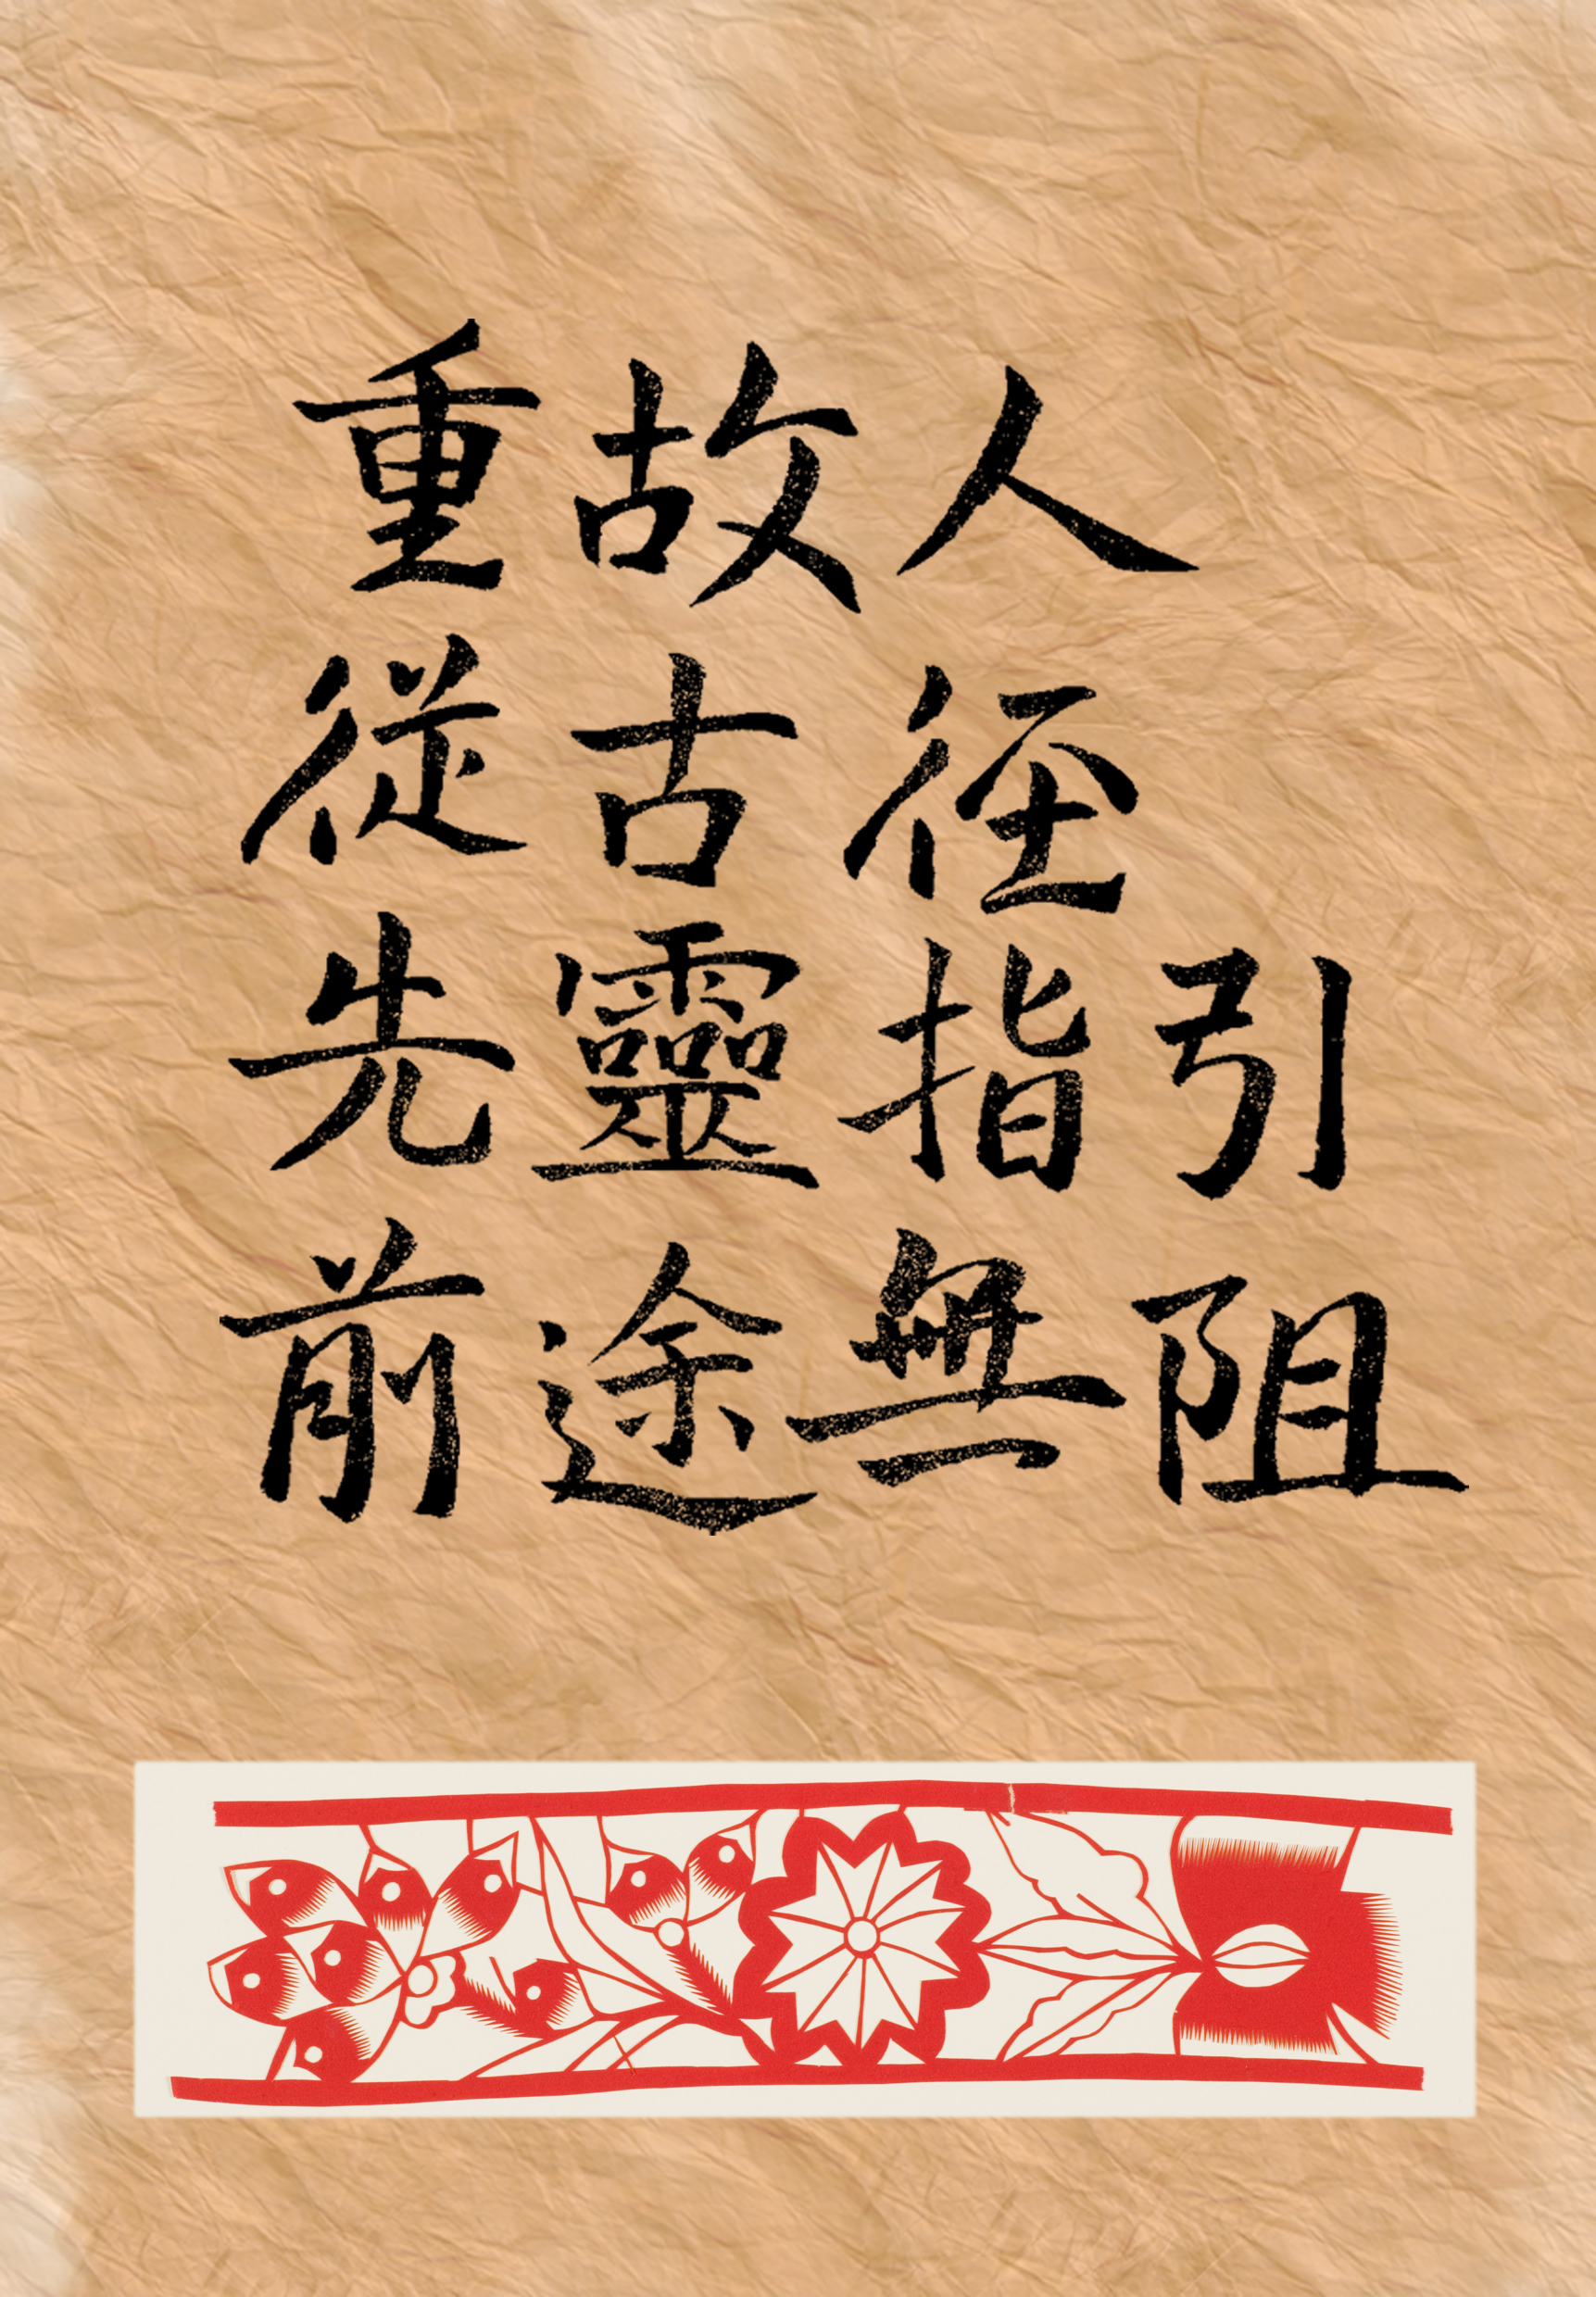 重故人
從古径
先靈指引
前途無阻